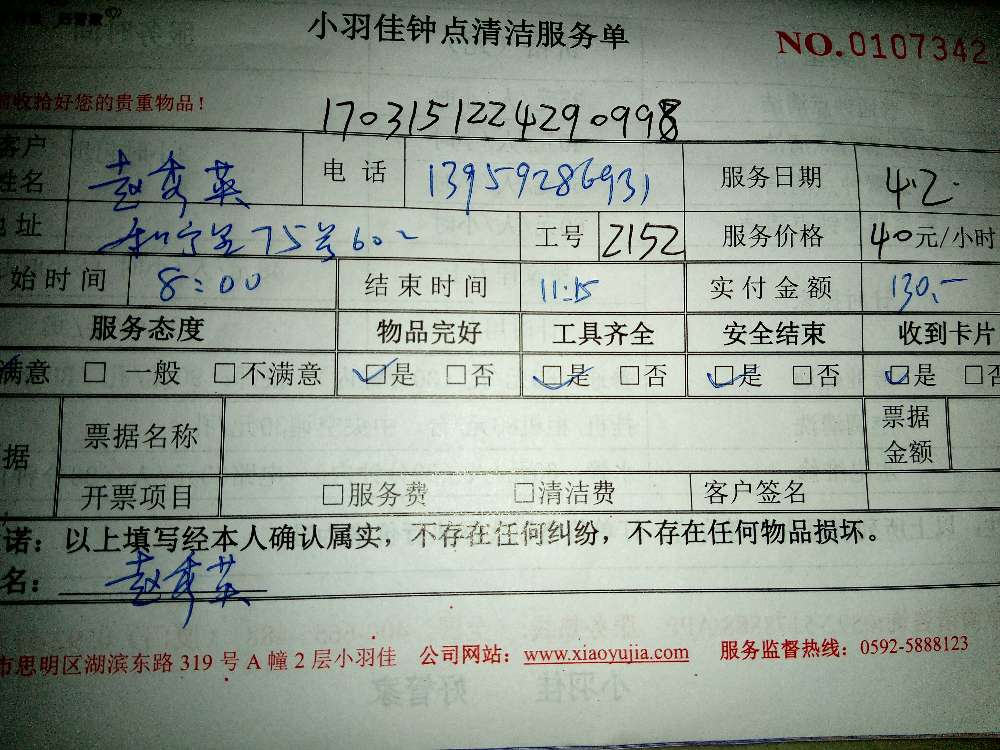 好管家
小羽佳钟点清洁服务单
NO.0107342
收拾好您的贵重物品！
1703151224290998
客户姓名 赵秀英 电话 13959286931 服务日期 4.2.
地址 和宁里75号602 工号 2152 服务价格 40元/小时
始时间 8:00 结束时间 11:15 实付金额 130.-
服务态度 物品完好 工具齐全 安全结束 收到卡片
满意 □ 一般 □不满意 □是 □否 □是 □否 □是 □否 □是 □否
据 票据名称 票据金额
开票项目 □服务费 □清洁费 客户签名
诺：以上填写经本人确认属实，不存在任何纠纷，不存在任何物品损坏。
名：赵秀英
市思明区湖滨东路 319 号 A 幢 2 层小羽佳 公司网站：www.xiaoyujia.com 服务监督热线：0592-5888123